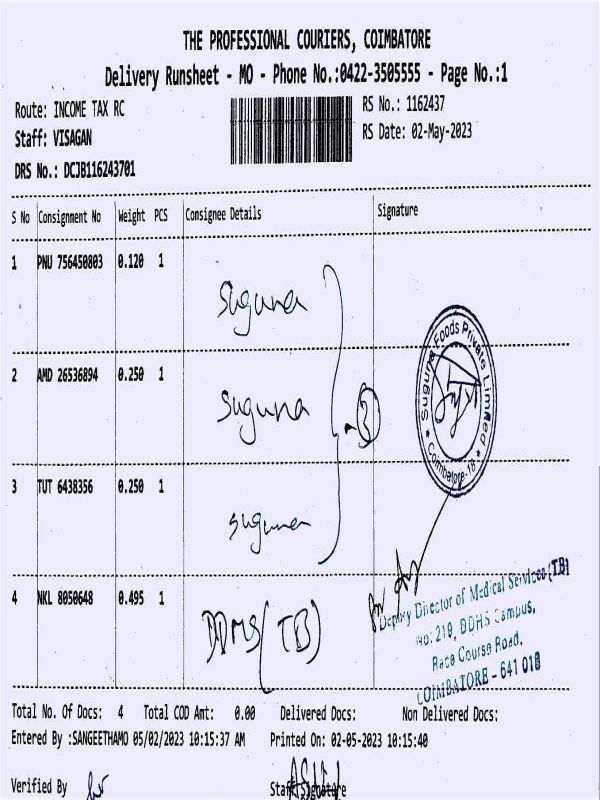 THE PROFESSIONAL COURIERS, COIMBATORE
Delivery Runsheet - MO - Phone No.:0422-3505555 - Page No.:1
Route: INCOME TAX RC
RS No.: 1162437
Staff: VISAGAN
RS Date: 02-May-2023
DRS No.: DCJB116243701
S No Consignment No Weight PCS Consignee Details Signature
1 PNU 756450803 0.120 1 Suguna
2 AMD 26536894 0.250 1 Suguna
3
Suguna Foods Private Limited
* Coimbatore-18 *
3 TUT 6438356 0.250 1 suguna
4 NKL 8050648 0.495 1 DDMS (TB)
Deputy Director of Medical Services (TB)
No: 219, DDHS Campus,
Race Course Road,
COIMBATORE - 641 018
Total No. Of Docs: 4 Total COD Amt: 0.00 Delivered Docs: Non Delivered Docs:
Entered By :SANGEETHAMO 05/02/2023 10:15:37 AM Printed On: 02-05-2023 10:15:40
Verified By Staff Signature